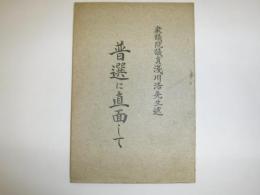 衆議院議員浅川浩先生述
普選に直面して